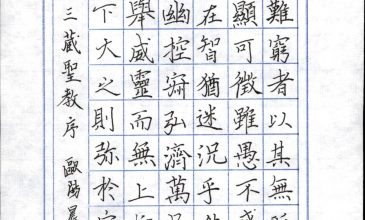 難窮者以其無
顯可徵雖愚不
在智猶迷況乎
幽控寂弘濟萬
舉威靈而無上
下大之則弥於
三藏聖教序 歐陽晨